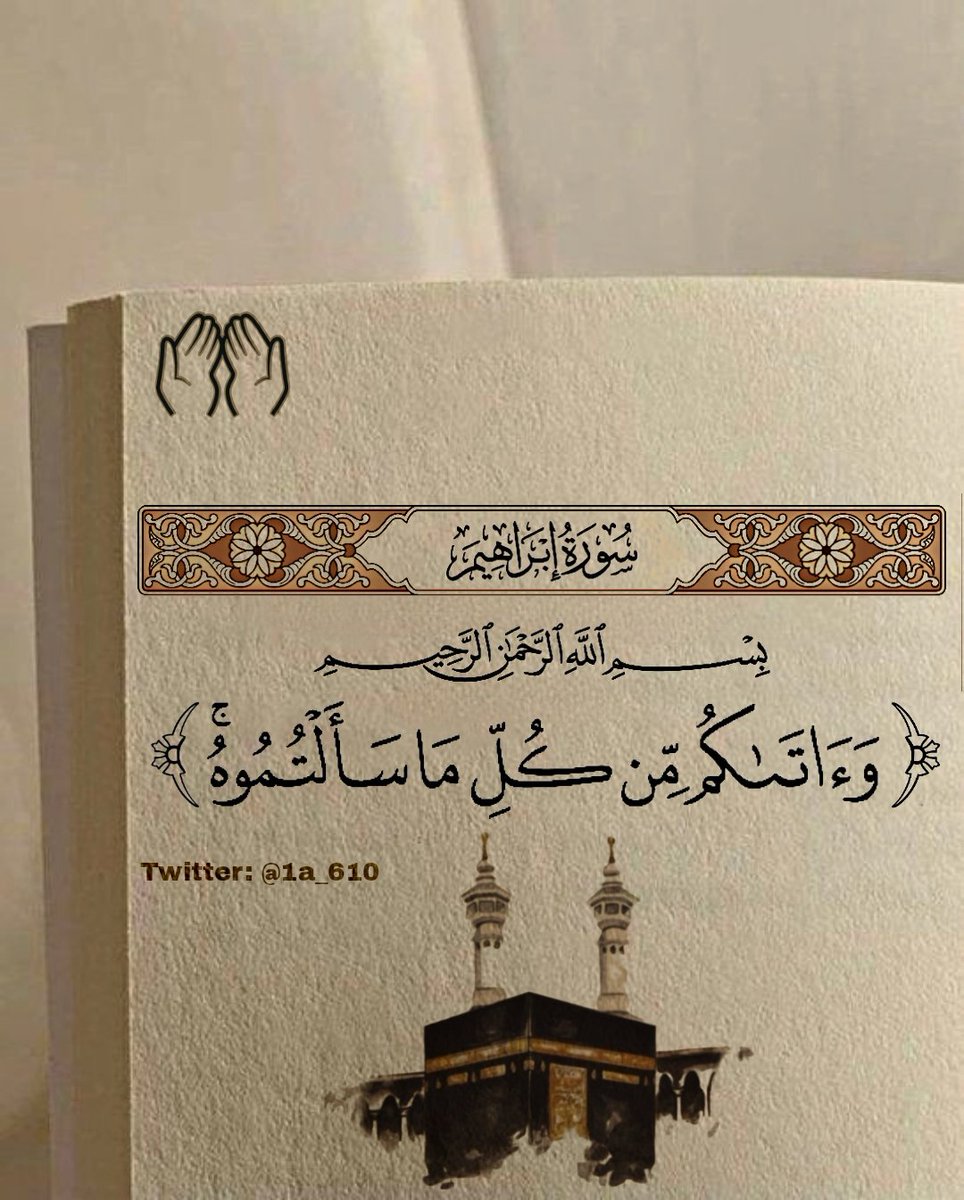 سُورَةُ إِبْرَاهِيمَ
بِسْمِ ٱللَّهِ ٱلرَّحْمَٰنِ ٱلرَّحِيمِ
﴿وَءَاتَىٰكُم مِّن كُلِّ مَا سَأَلْتُمُوهُۚ﴾
Twitter: @1a_610